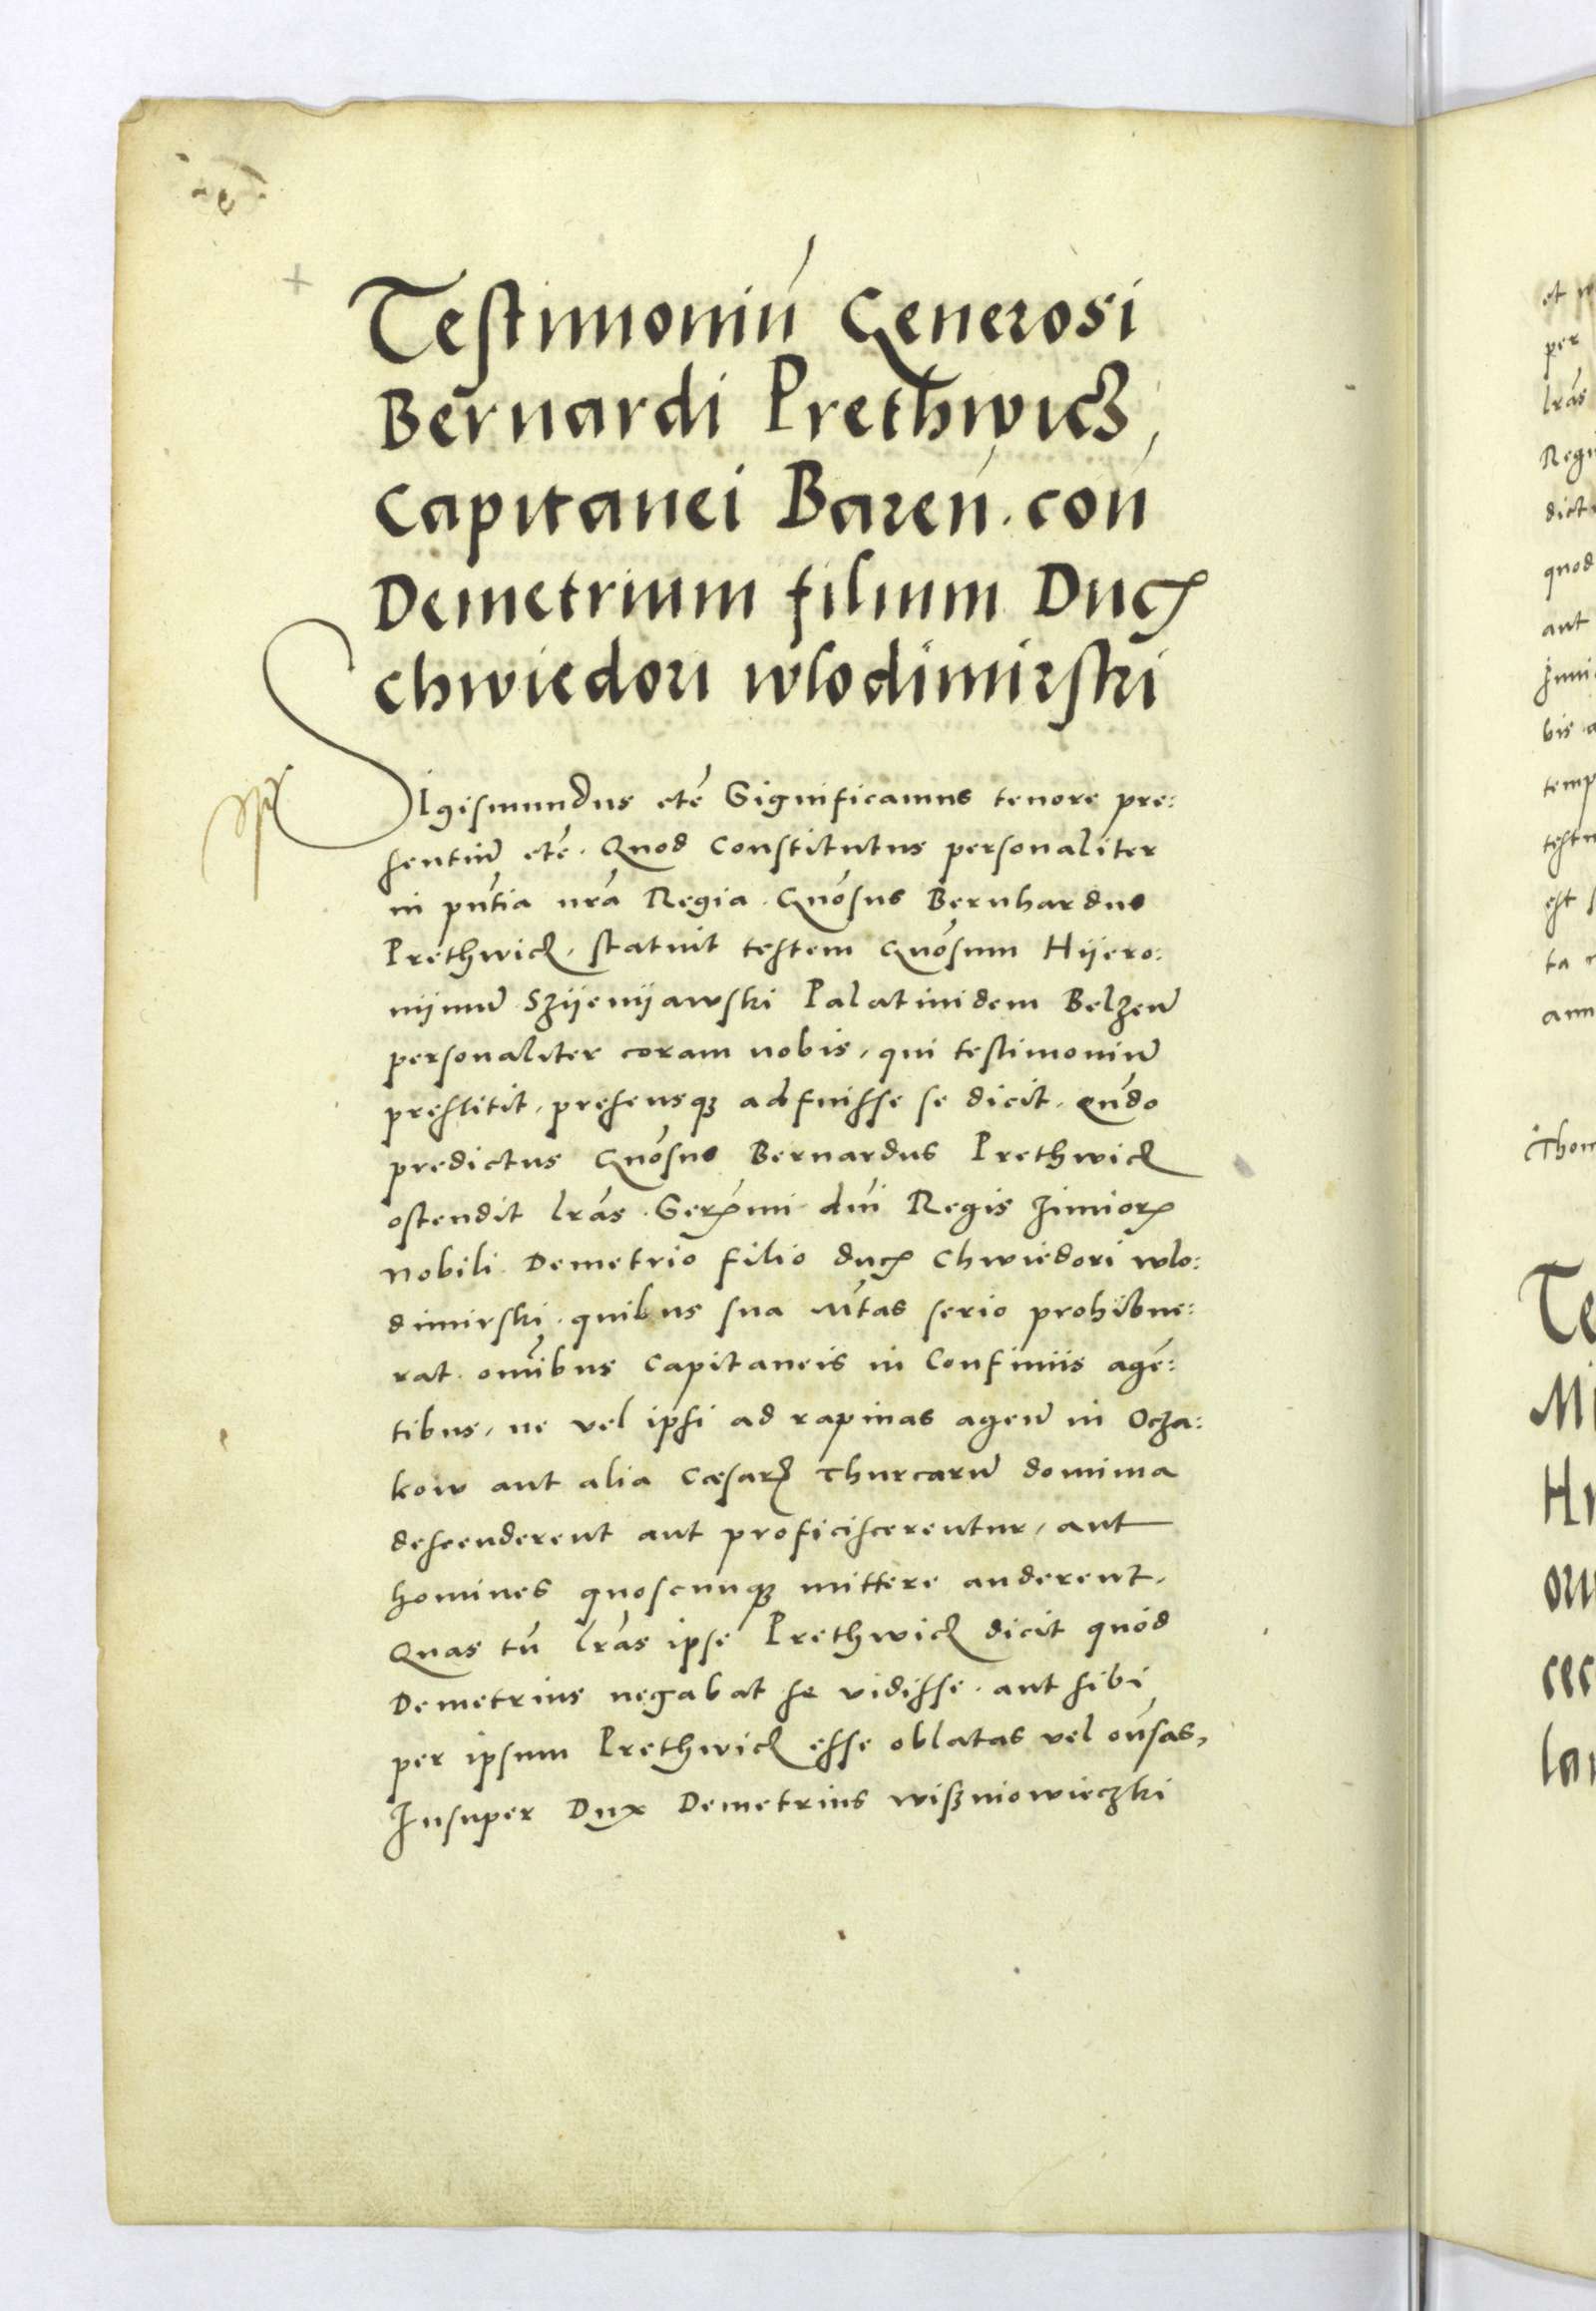 Testimoniū Generosi
Bernardi Prethwicz,
Capitanei Bareń. coń
Demetrium filium Ducꝭ
Chwiedori Wlodimirski
SIgismundus etc̄ Significamus tenore pre:
sentiū etc̄. Quod Constitutus personaliter
in pn̄tia nr̄a Regia. Gn̄osus Bernhardus
Prethwicz, statuit testem Gn̄osum Hijero:
nijmū Szijenijawski Palatinidem Belzeń
personaliter coram nobis, qui testimoniū
prestitit, presensqꝫ adfuisse se dicit, qn̄do
predictus Gn̄osus Bernardus Prethwicz
ostendit lr̄as Serꝭmi dn̄i Regis Junioris
Nobili Demetrio filio ducꝭ Chwiedori Wlo:
dimirski, quibus sua M̄tas serio prohibue:
rat om̄ibus Capitaneis in Confiniis agē:
tibus, ne vel ipsi ad rapinas agenď in Ocza:
kow aut alia Cæsarꝭ Thurcarū dominia
descenderent aut proficiscerentur, aut
homines quoscunqꝫ mittere auderent.
Quas tń lr̄as ipse Prethwicz dicit quòd
Demetrius negabat se vidisse, aut sibi
per ipsum Prethwicz esse oblatas vel on̄sas,
Insuper Dux Demetrius wiszniowieczki
et
per
lr̄as
Regi
dict
quod
aut
Juni
bis
temp
test
est
ta
ann
Thom
Te
Mi
Hi
ori
cec
lar